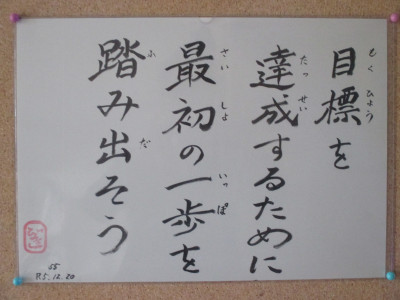 目標を
達成するために
最初の一歩を
踏み出そう
もくひょう
たっせい
さいしょ
いっぽ
ふ
だ
55
R5.12.20